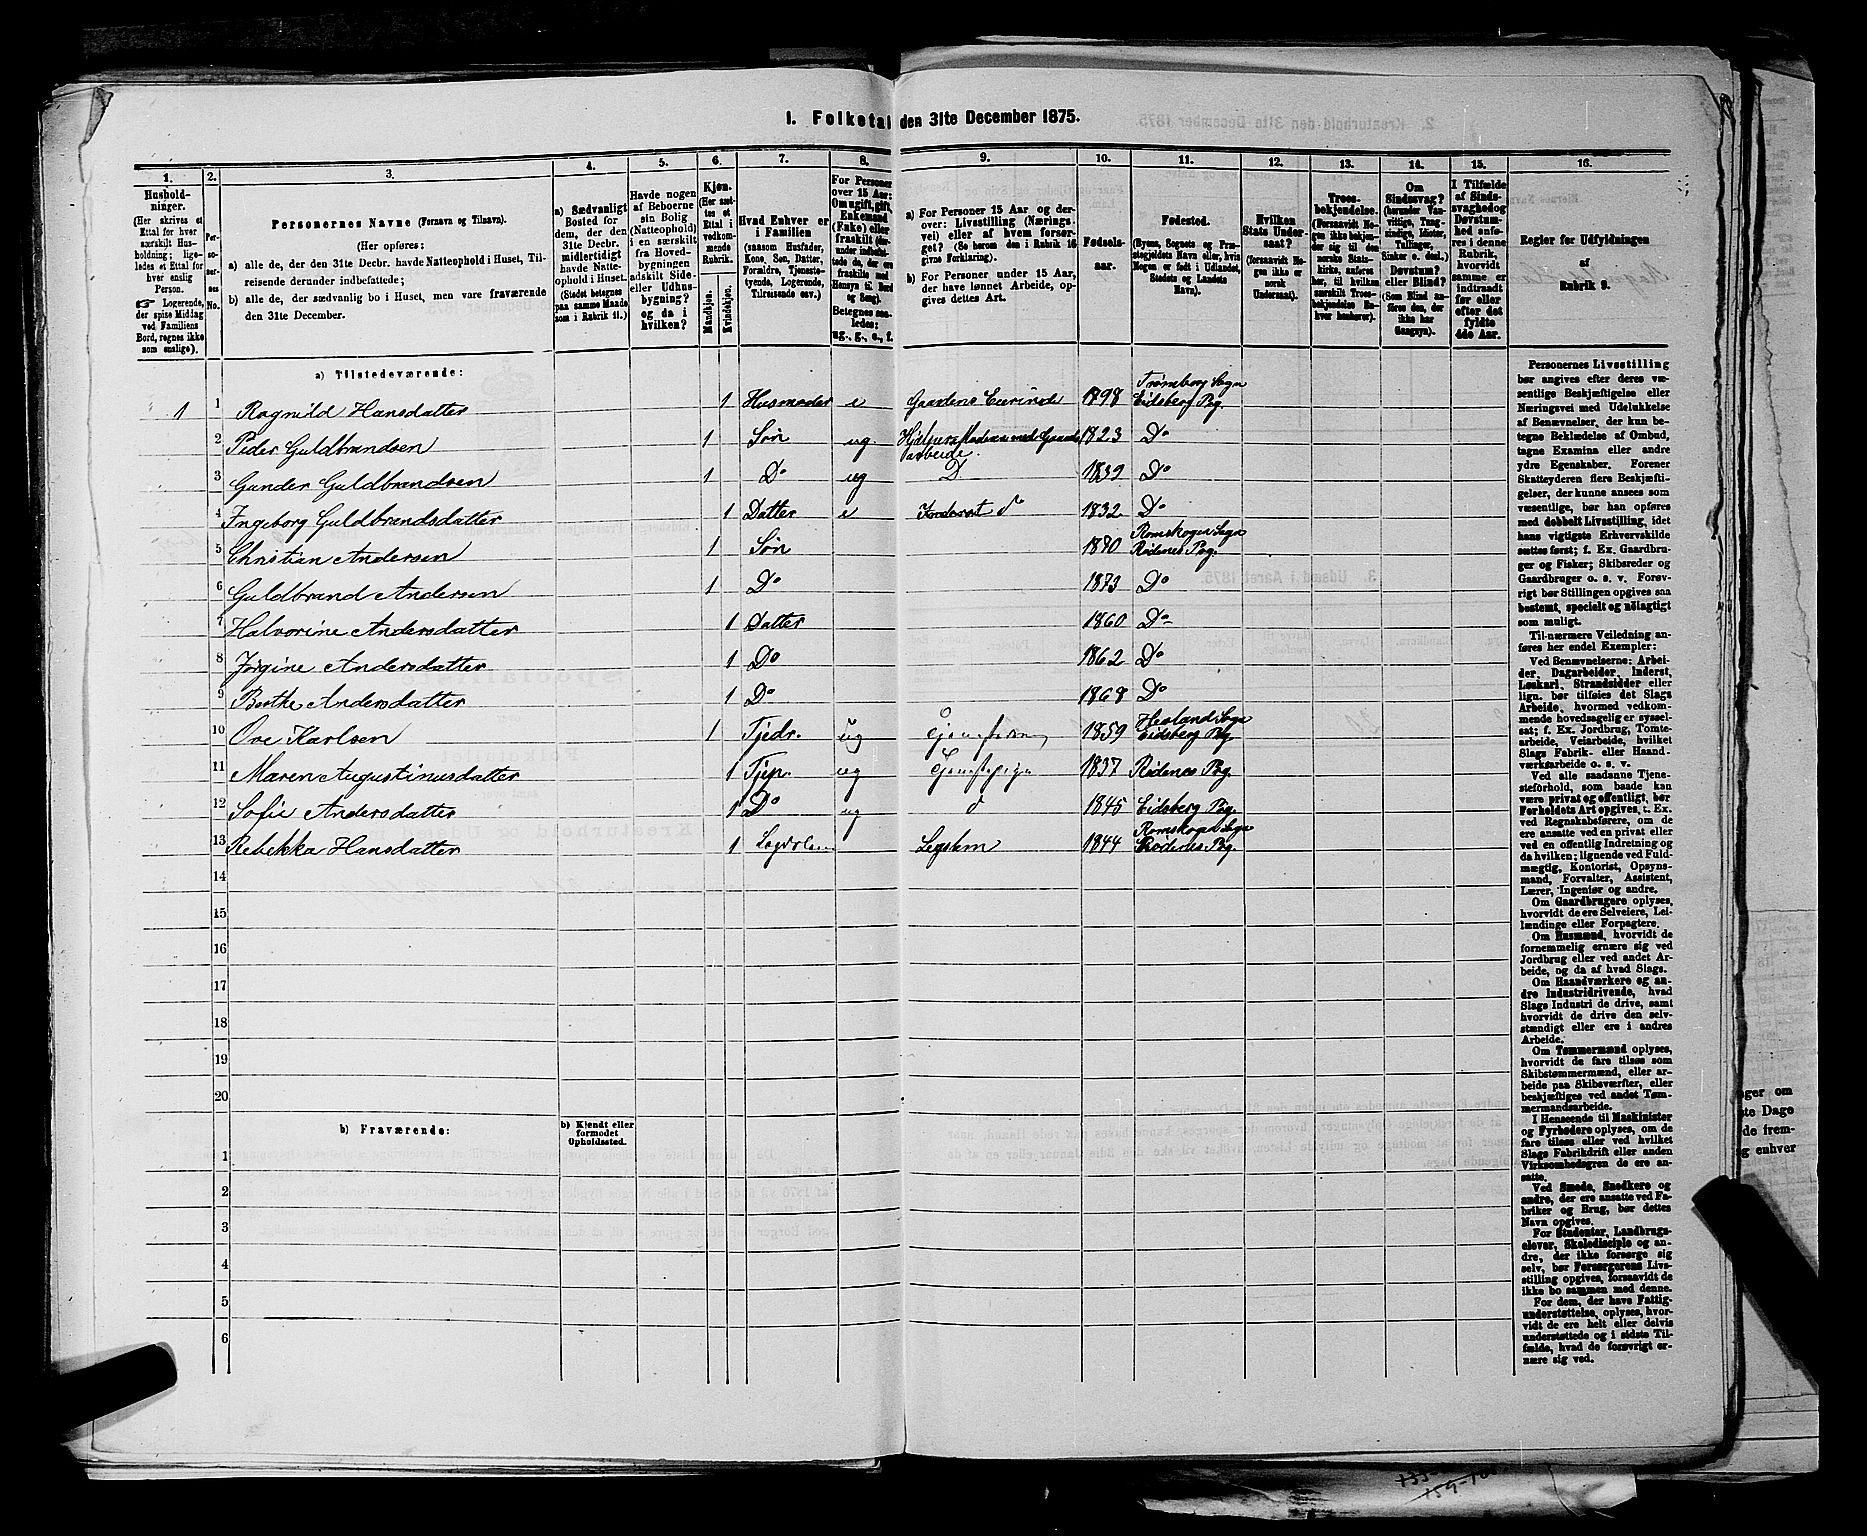 I. Folketal den 31te December 1875.
1. 2. 3. 4. 5. 6. 7. 8. 9. 10. 11. 12. 13. 14. 15. 16.
Hushold-
ninger.
(Her skrives et
Ettal for hver
særskilt Hus-
holdning; lige-
ledes et Ettal for
hver enslig
Person.
☞ Logerende,
der spise Middag
ved Familiens
Bord, regnes ikke
som enslige).
Per-
soner-
nes
No.
Personernes Navne (Fornavn og Tilnavn).
(Her opføres:
a) alle de, der den 31te Decbr. havde Natteophold i Huset, Til-
reisende derunder indbefattede;
b) alle de, der sædvanlig bo i Huset, men vare fraværende
den 31te December.
a) Sædvanligt
Bosted for
dem, der den
31te Decbr.
midlertidigt
havde Natte-
ophold i Huset.
(Stedet betegnes
paa samme Maade
som i Rubrik 11.)
Havde nogen
af Beboerne
sin Bolig
(Natteophold)
i en særskilt
fra Hoved-
bygningen
adskilt Side-
eller Udhus-
bygning?
og da i
hvilken?
Kjøn.
(Her sæt-
tes et
Ettal i
vedkom-
mende
Rubrik.
Mandkjøn.
Kvindekjøn.
Hvad Enhver er
i Familien
(saasom Husfader,
Kone, Søn, Datter,
Forældre, Tjeneste-
tyende, Logerende,
Tilreisende osv.)
For Personer
over 15 Aar:
Om ugift, gift,
Enkemand
(Enke) eller
fraskilt
Betegnes saa-
ledes:
ug., g., e., f.
a) For Personer 15 Aar og der-
over: Livsstilling (Nærings-
vei) eller af hvem forsør-
get? (Se herom den i Rubrik 16
givne Forklaring).
b) For Personer under 15 Aar,
der have lønnet Arbeide, op-
gives dettes Art.
Fødsels-
aar.
Fødested.
(Byens, Sognets og Præ-
stegjeldets Navn eller, hvis
Nogen er født i Udlandet,
Stedets og Landets
Navn).
Hvilken
Stats Under-
saat?
(forsaavidt No-
gen ikke er
norsk
Undersaat).
Troes-
bekjendelse.
(Forsaavidt No-
gen ikke bekjen-
der sig til den
norske Stats-
kirke, anføres
her, til hvilken
særskilt Troes-
bekjendelse En-
hver henhører).
Om
Sindssvag?
(herunder Van-
vittige, Tung-
sindige, Idioter,
Tullinger,
Sinker o. desl.)
Døvstum?
eller Blind?
(Som Blind an-
føres den, der
ikke har
Gangsyn).
I Tilfælde
af Sinds-
svaghed og
Døvstum-
hed anfø-
res i denne
Rubrik,
hvorvidt
samme er
indtraadt
før eller
efter det
fyldte
4de Aar.
Regler for Udfyldningen
af
Rubrik 9.
a) Tilstedeværende:
1 1 Ragnild Hansdatter 1 Husmoder e Gaardens 1898 Trømborg Sogn Eidsberg Pg.
2 Peder Guldbrandsen 1 Søn ug. Hjelper Moderen med Gaards arbeide. 1823 Do
3 Gunder Guldbrandsen 1 Do ug D 1839 Do
4 Ingeborg Guldbrandsdatter 1 Datter e d 1832 Do
5 Christian Andersen 1 Søn 1870 Romskogen Sogn Rødenes Pg.
6 Guldbrand Andersen 1 Do 1873 Do
7 Halvorine Andersdatter 1 Datter 1860 Do
8 Jørgine Andersdatter 1 Do 1862 Do
9 Berthe Andersdatter 1 Do 1868 Do
10 Ove Karlsen 1 Tjedr. ug 1859 Hesland Sogn Eidsberg Pg.
11 Maren Augustinusdatter 1 Tjep. ug 1837 Rødenes Pg.
12 Sofie Andersdatter 1 Do ug d 1845 Eidsberg Pg.
13 Rebekka Hansdatter 1 Legdslem 1844 Romskogen Sogn Rødenes Pg.
14
15
16
17
18
19
20
b) Fraværende:
b) Kjendt eller
formodet
Opholdssted.
1
2
3
4
5
6
Personernes Livsstilling
bør angives efter deres væ-
sentlige Beskjæftigelse eller
Næringsvei med Udelukkelse
af Benævnelser, der kun be-
tegne Beklædelse af Ombud,
tagne Examina eller andre
ydre Egenskaber. Forener
Skatteyderen flere Beskjæfti-
gelser, der kunne ansees som
væsentlige, bør han opføres
med dobbelt Livsstilling, idet
hans vigtigste Erhvervskilde
sættes først; f. Ex. Gaardbru-
ger og Fisker; Skibsreder og
Gaardbruger o. s. v. Forøv-
rigt bør Stillingen opgives saa
bestemt, specielt og nøiagtigt
som muligt.
Til nærmere Veiledning an-
føres her endel Exempler:
Ved Benævnelserne: Arbei-
der, Dagarbeider, Inderst,
Løskarl, Strandsidder eller
lign. bør tilføies det Slags
Arbeide, hvormed vedkom-
mende hovedsagelig er syssel-
sat; f. Ex. Jordbrug, Tomte-
arbeide, Veiarbeide, hvilket
Slags Fabrik- eller Haand-
værksarbeide o. s. v.
Ved alle saadanne Tjene-
steforhold, som baade kan
være privat og offentligt, bør
Forholdets Art opgives, t. Ex.
ved Regnskabsførere, om de
ere ansatte ved en privat eller
ved en offentlig Indretning og
da hvilken; lignende ved Fuld-
mægtig, Kontorist, Opsyns-
mand, Forvalter, Assistent,
Lærer, Ingeniør og andre.
Om Gaardbrugere oplyses,
hvorvidt de ere Selveiere, Lei-
lændinge eller Forpagtere.
Om Husmænd, hvorvidt de
fornemmelig ernære sig ved
Jordbrug eller ved andet Ar-
beide, og da af hvad Slags.
Om Haandværkere og an-
dre Industridrivende, hvad
Slags Industri de drive, samt
hvorvidt de drive den selv-
stændigt eller ere i andres
Arbeide.
Om Tømmermænd oplyses,
hvorvidt de fare tilsøs som
Skibstømmermænd, eller ar-
beide paa Skibsværfter, eller
beskjæftiges ved andet Tøm-
mermandsarbeide.
I Henseende til Maskinister
og Fyrbødere oplyses, om de
fare tilsøs eller ved hvilket
Slags Fabrikdrift eller anden
Virksomhedsgren de ere an-
satte.
Ved Smede, Snedkere og
andre, der ere ansatte ved Fa-
briker og Brug, bør dettes
Navn opgives.
For Studenter, Landbrugs-
elever, Skoledisciple og an-
dre, der ikke forsørge sig
selv, bør Forsørgerens Livs-
stilling opgives, forsaavidt de
ikke bo sammen med denne.
For dem, der have Fattig-
understøttelse, oplyses, hvor-
vidt de ere helt eller delvis
understøttede og i sidste Til-
fælde, hvad de forøvrigt er-
nære sig ved.